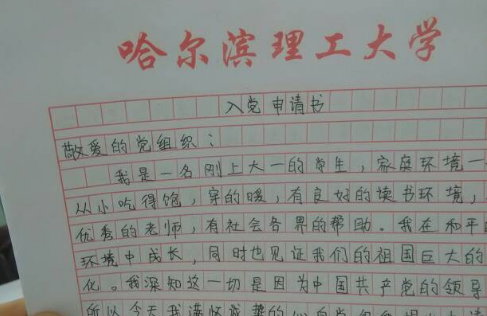 哈尔滨理工大学
入党申请书
敬爱的党组织：
我是一名刚上大一的学生，家庭环境一
从小吃得饱，穿的暖，有良好的读书环境，
优秀的老师，有社会各界的帮助。我在和平的
环境中成长，同时也见证我们的祖国巨大的
化。我深知这一切是因为中国共产党的领导
所以今天我满怀